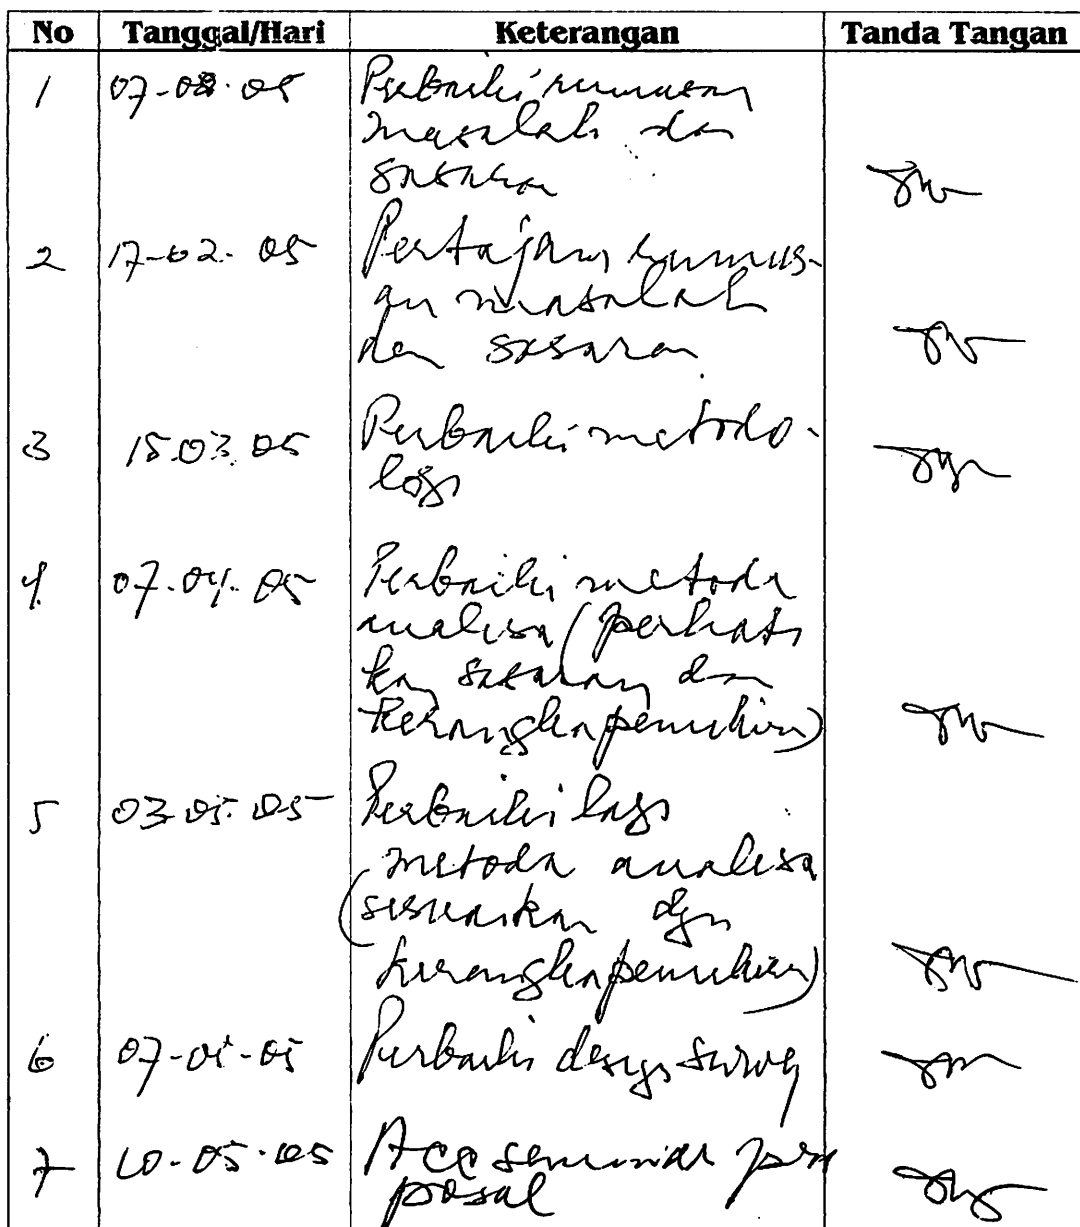 No Tanggal/Hari Keterangan Tanda Tangan
1 07-02-05 Perbaiki rumusan
masalah dan
sasaran
2 17-02-05 Pertajam rumus-
an masalah
dan sasaran
3 15.03.05 Perbaiki metodo-
logi
4. 07.04.05 Perbaiki metoda
analisa (perhati
kan sasaran dan
kerangka pemikiran)
5 03.05.05 Perbaiki lagi
metoda analisa
(sesuaikan dgn
kerangka pemikiran)
6 07-05-05 Perbaiki design survey
7 10-05-05 Acc seminar pro
posal